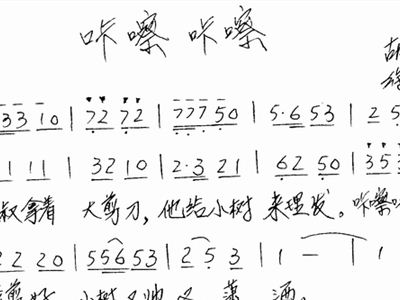 咔嚓 咔嚓
胡
33 10 | 72 72 | 777 50 | 5·6 53 | 2 5
1 11 | 32 10 | 2·3 21 | 62 50 | 353
叔拿着 大剪刀，他给小树 来理发。咔嚓
22 20 | 556 53 | 2 5 3 | 1 — | 1
小树又帅又潇洒。